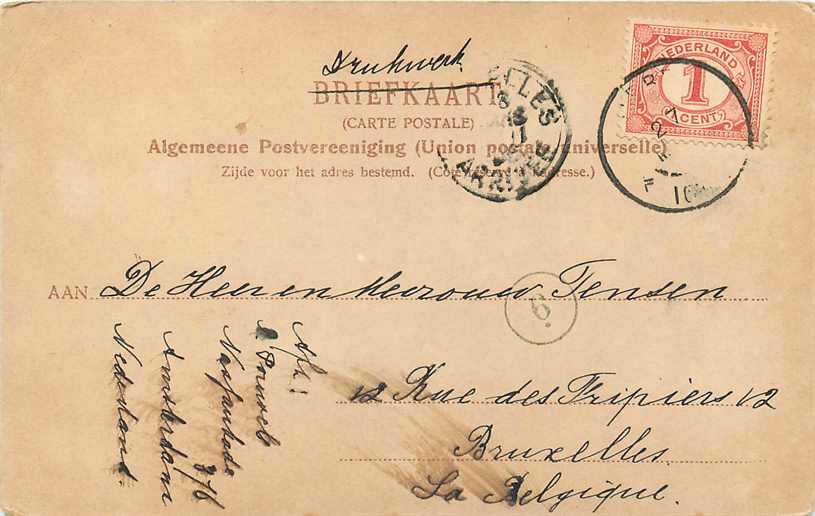 Drukwerk
BRIEFKAART
(CARTE POSTALE)
Algemeene Postvereeniging (Union postale universelle)
Zijde voor het adres bestemd. (Côté réservé à l'adresse.)
NEDERLAND
1
CENT
ELLES
ARRI
10
AAN De Heer en Mevrouw Jensen
6
12 Rue des Fripiers 12
Bruxelles
La Belgique.
Afz:
Nassaukade 376
Amsterdam
Nederland.